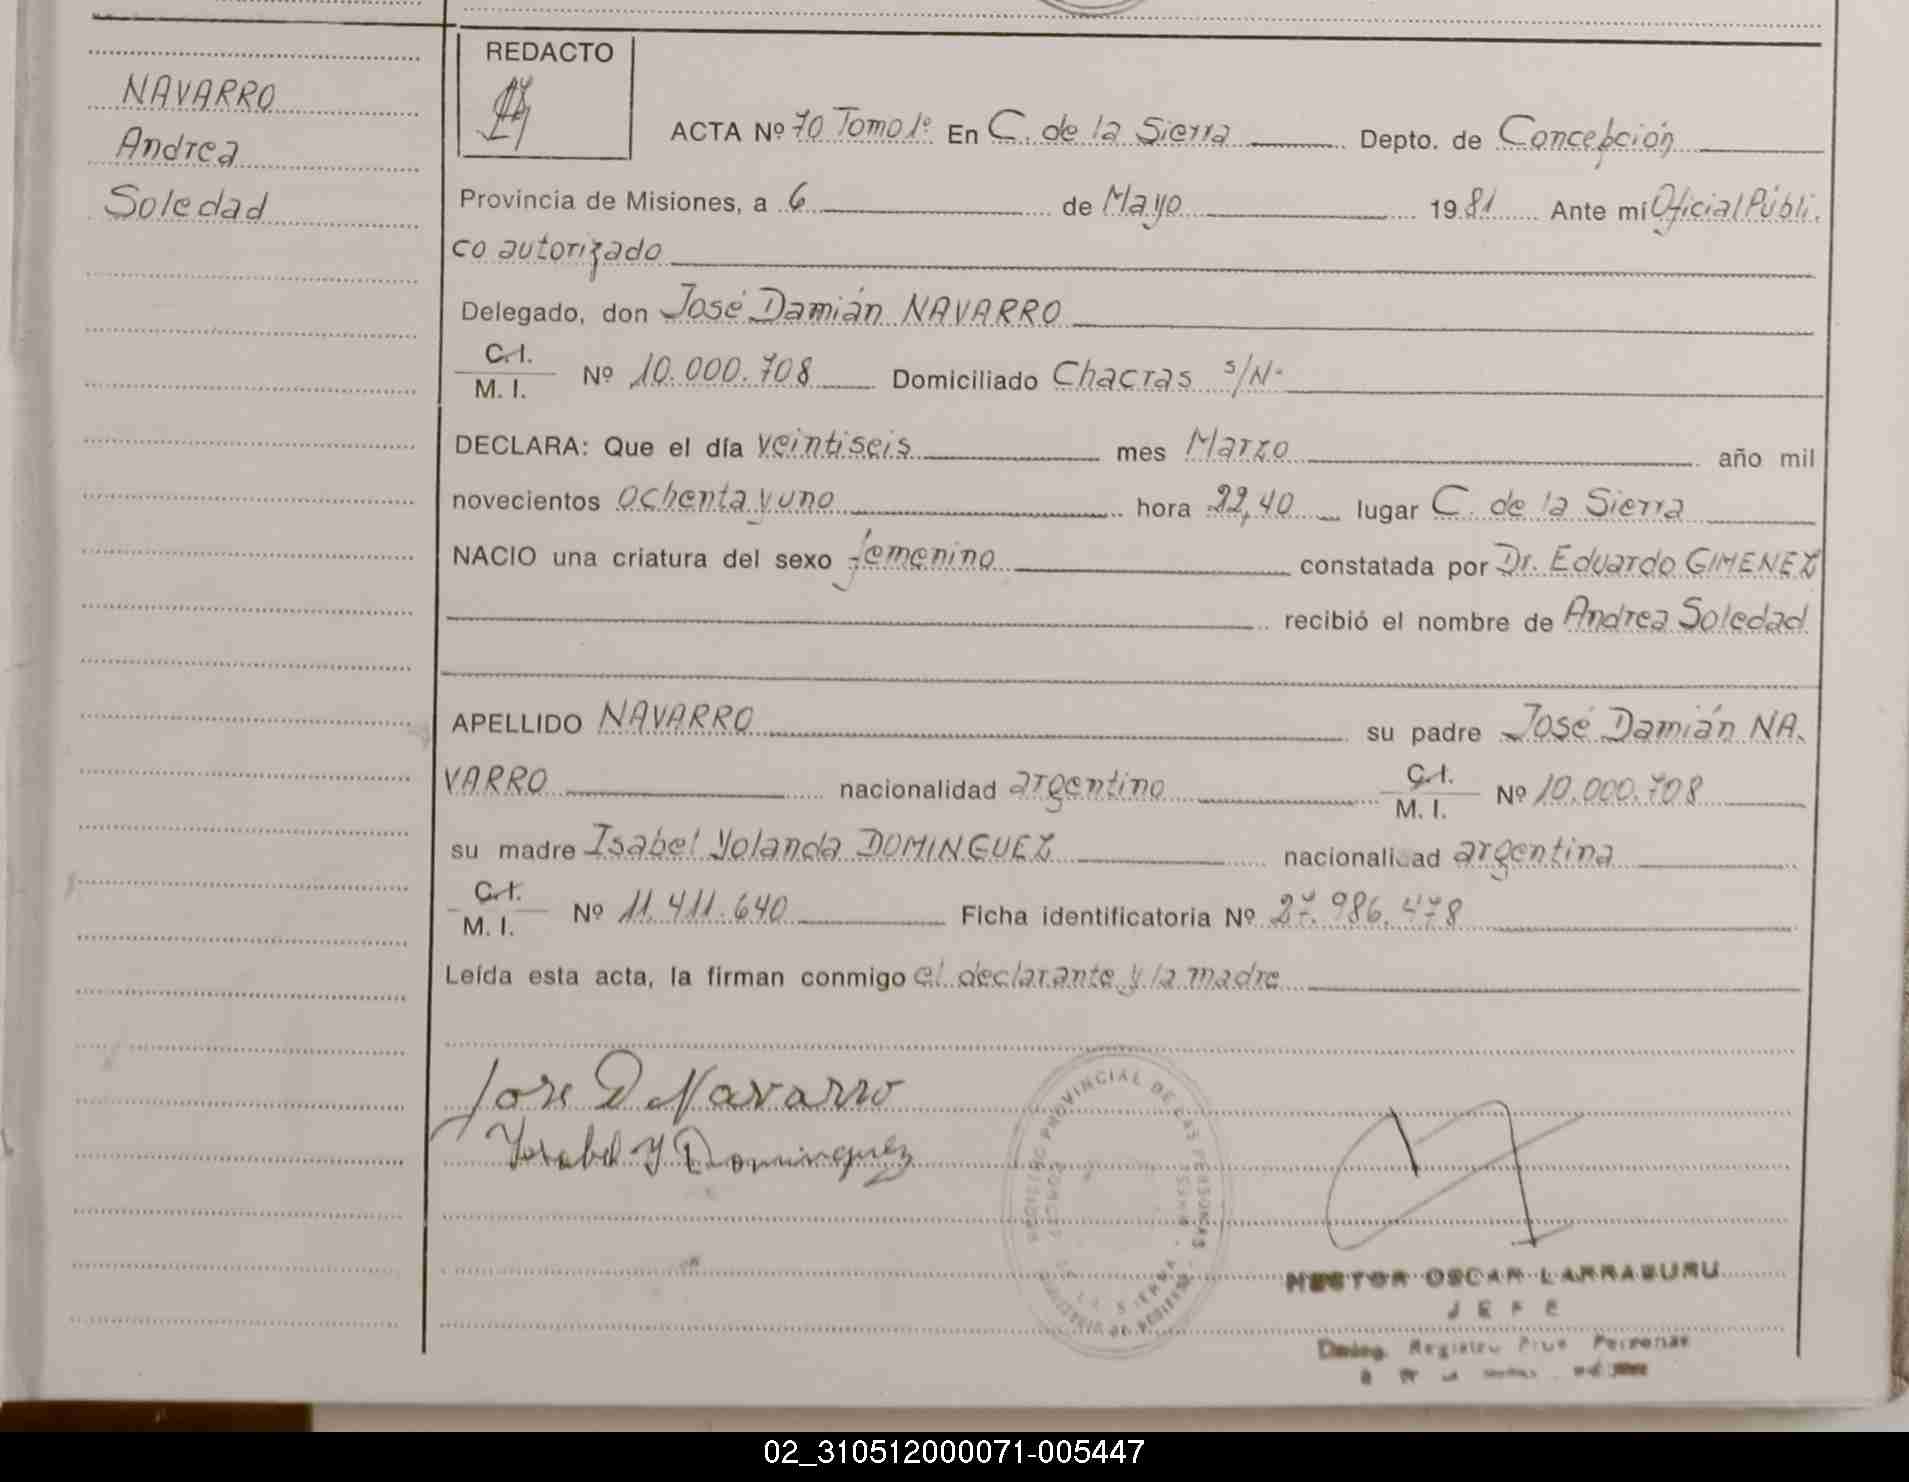 NAVARRO
Andrea
Soledad
REDACTO
ACTA Nº 70 Tomo 1º En C. de la Sierra Depto. de Concepción
Provincia de Misiones, a 6 de Mayo 1981 Ante mí Oficial Públi-
co autorizado
Delegado, don José Damián NAVARRO
C.I.
M. I. Nº 10.000.708 Domiciliado Chacras s/N-
DECLARA: Que el día veintiseis mes Marzo año mil
novecientos ochenta y uno hora 22,40 lugar C. de la Sierra
NACIO una criatura del sexo femenino constatada por Dr. Eduardo GIMENEZ
recibió el nombre de Andrea Soledad
APELLIDO NAVARRO su padre José Damián NA-
VARRO nacionalidad argentino C.I. M. I. Nº 10.000.708
su madre Isabel Yolanda DOMINGUEZ nacionalidad argentina
C.I.
M. I. Nº 11.411.640 Ficha identificatoria Nº 27.986.478
Leída esta acta, la firman conmigo el declarante y la madre
Jose D Navarro
Ysabel Y Dominguez
REGISTRO PROVINCIAL DE LAS PERSONAS
HECTOR OSCAR LARRABURU
JEFE
Registro Personas
02_310512000071-005447